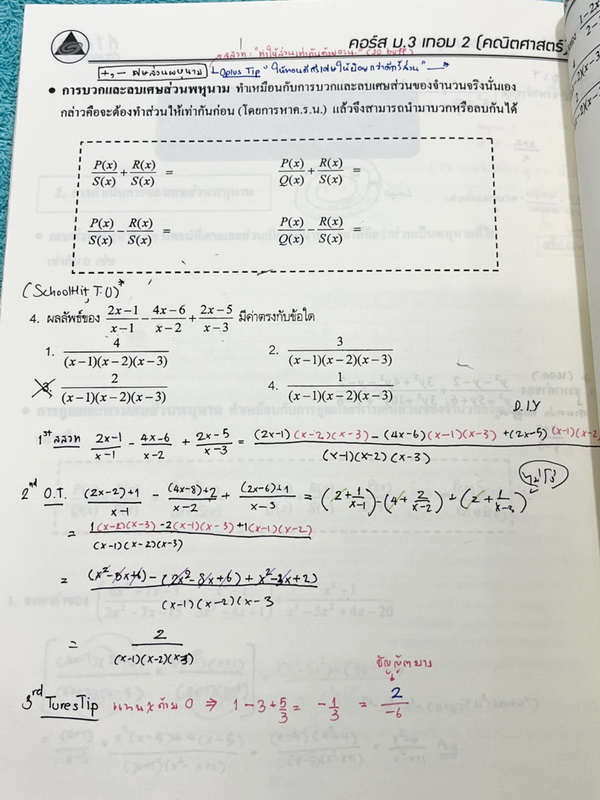 คอร์ส ม.3 เทอม 2 (คณิตศาสตร์)
+, − เศษส่วนพหุนาม
Oplus Tip
• การบวกและลบเศษส่วนพหุนาม ทำเหมือนกับการบวกและลบเศษส่วนของจำนวนจริงนั่นเอง
กล่าวคือจะต้องทำส่วนให้เท่ากันก่อน (โดยการหาค.ร.น.) แล้วจึงสามารถนำมาบวกหรือลบกันได้
P(x)/S(x) + R(x)/S(x) =
P(x)/Q(x) + R(x)/S(x) =
P(x)/S(x) − R(x)/S(x) =
P(x)/Q(x) − R(x)/S(x) =
4. ผลลัพธ์ของ (2x−1)/(x−1) − (4x−6)/(x−2) + (2x−5)/(x−3) มีค่าตรงกับข้อใด
1. 4/((x−1)(x−2)(x−3))
2. 3/((x−1)(x−2)(x−3))
3. 2/((x−1)(x−2)(x−3))
4. 1/((x−1)(x−2)(x−3))
D.I.Y
1st สสวท (2x-1)/(x-1) - (4x-6)/(x-2) + (2x-5)/(x-3) = ((2x-1)(x-2)(x-3) - (4x-6)(x-1)(x-3) + (2x-5)(x-1)(x-2))/((x-1)(x-2)(x-3))
2nd O.T. ((2x-2)+1)/(x-1) - ((4x-8)+2)/(x-2) + ((2x-6)+1)/(x-3) = (2+1/(x-1)) - (4+2/(x-2)) + (2+1/(x-3))
= (1(x-2)(x-3) -2(x-1)(x-3) +1(x-1)(x-2))/((x-1)(x-2)(x-3))
= ((x²-5x+6) - (2x²-8x+6) + x²-3x+2)/((x-1)(x-2)(x-3
= 2/((x-1)(x-2)(x-3))
3rd Tures Tip แทน x ด้วย 0 ⇒ 1 - 3 + 5/3 = -1/3 = 2/-6